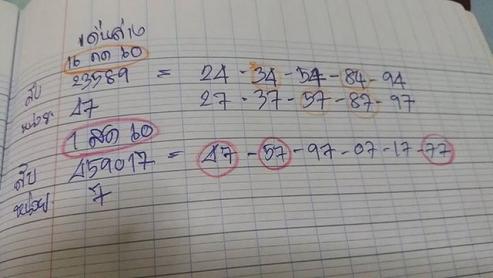 เด่นล่าง
16 ตค 60
สิบ 23589 = 24 - 34 - 54 - 84 - 94
หน่วย 47 27 - 37 - 57 - 87 - 97
1 พย 60
สิบ 459017 = 47 - 57 - 97 - 07 - 17 - 77
หน่วย 7